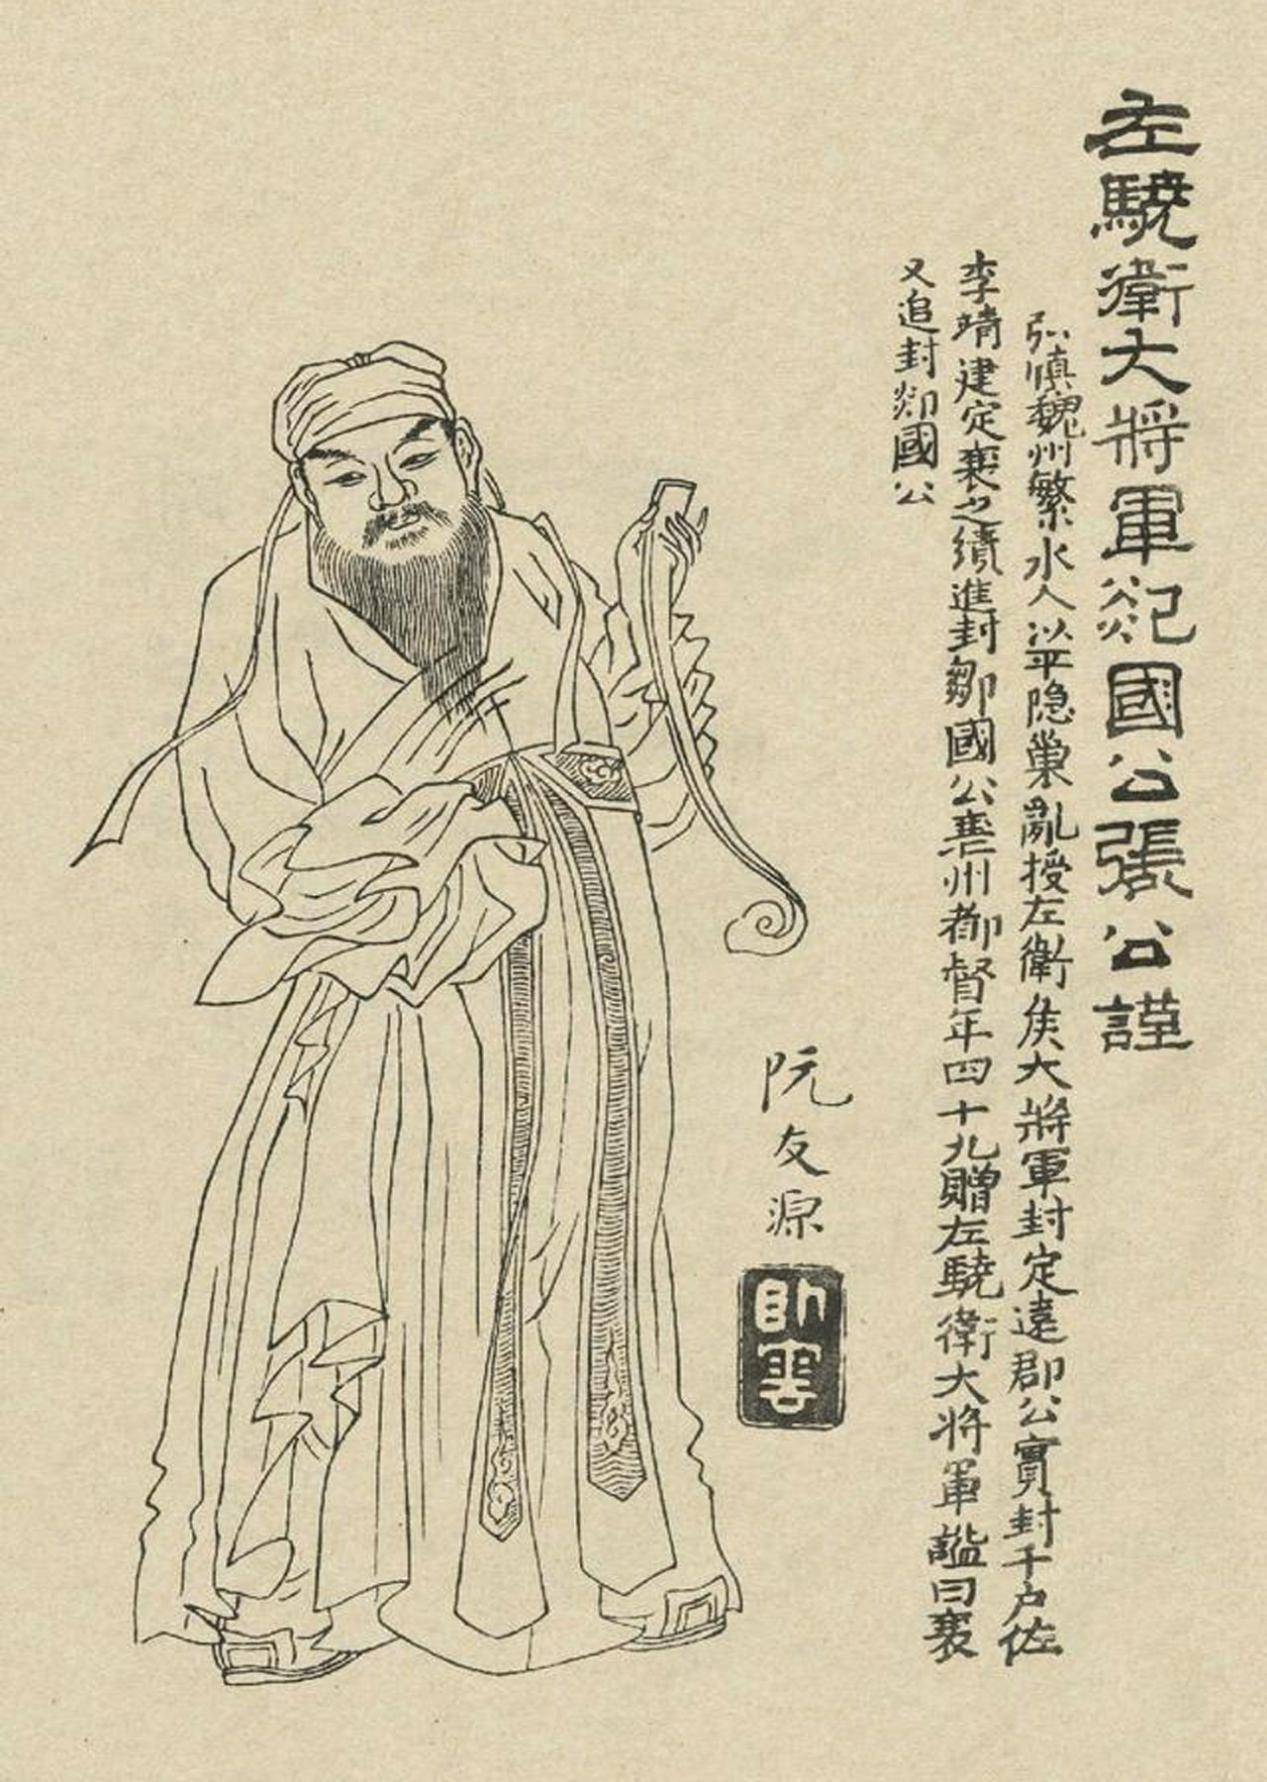 左驍衛大將軍郯國公張公謹
弘慎魏州繁水人以平隐巢亂授左衛矦大將軍封定遠郡公實封千户佐
李靖建定襄之績進封鄒國公襄州都督年四十九贈左驍衛大将軍謚曰襄
又追封郯國公
阮友源